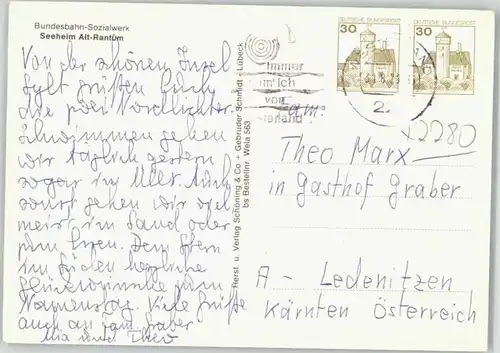 Bundesbahn-Sozialwerk
Seeheim Alt-Rantum
Von der schönen Insel
Sylt grüßen Euch
die zwei Nordlichter.
schwimmen gehen
wir täglich gestern
sogar im Meer. Auch
sonst gehen wir viel
meist im Sand oder
zum Essen. Dem
im Süden herzliche
Glückwünsche zum
Namenstag. Viele Grüße
auch an Fam. Graber
Mia und Theo
Herst. u. Verlag Schöning & Co + Gebrüder Schmidt · Lübeck
bs Bestellnr. Wela 563
DEUTSCHE BUNDESPOST
30
DEUTSCHE BUNDESPOST
30
immer
von
2
2280
Theo Marx
in Gasthof Graber
A - Ledenitzen
Kärnten Österreich